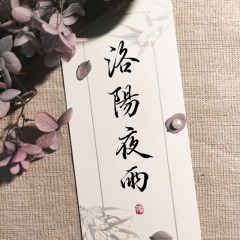 洛陽夜雨